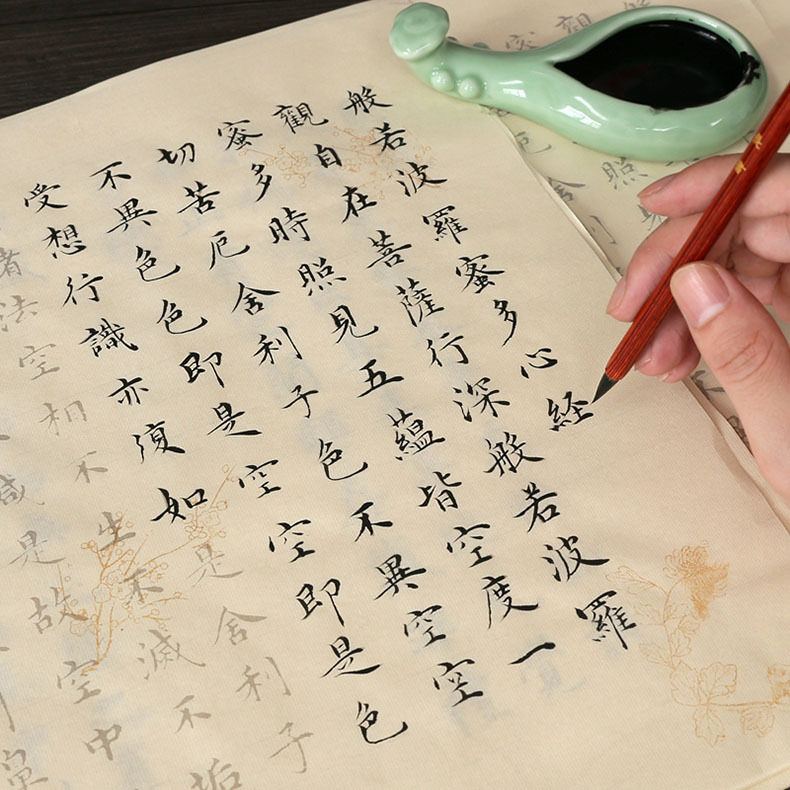 般若波羅蜜多心経
觀自在菩薩行深般若波羅
蜜多時照見五蘊皆空度一
切苦厄舍利子色不異空空
不異色色即是空空即是色
受想行識亦復如是舍利子
諸法空相不生不滅不垢
減是故空中
鼻